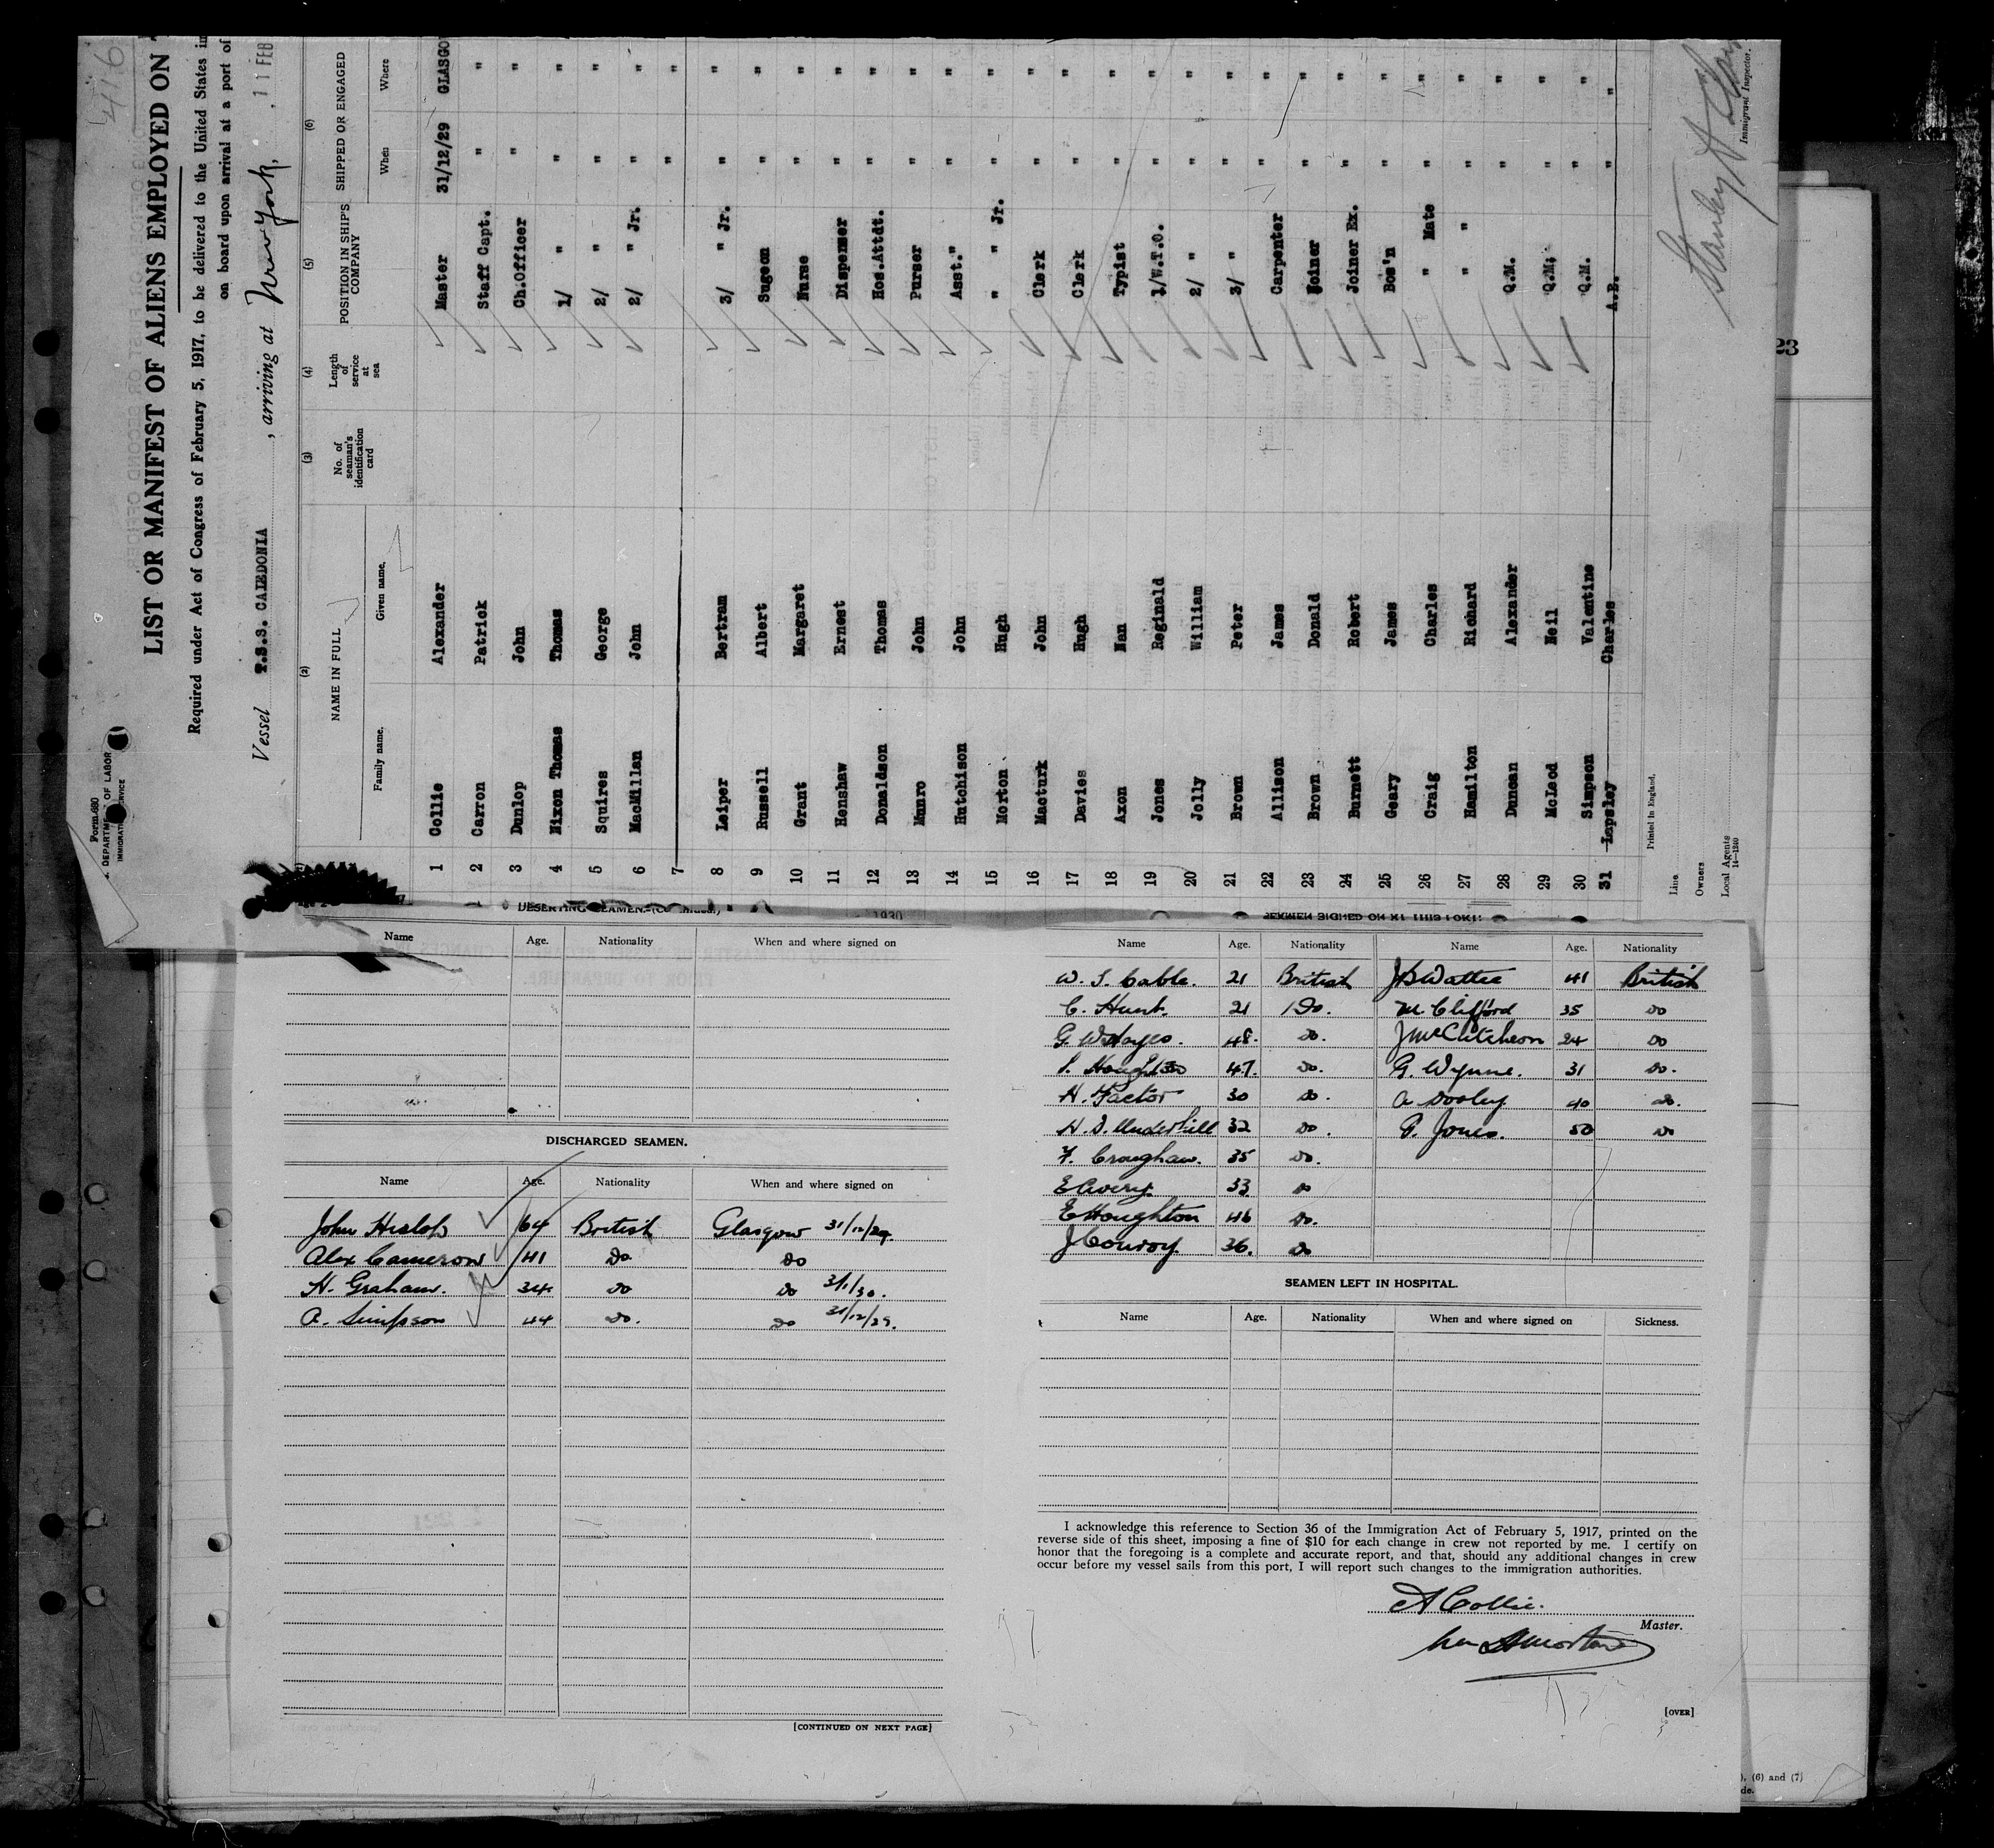 416
Form 680
DEPARTMENT OF LABOR
IMMIGRATION SERVICE
LIST OR MANIFEST OF ALIENS EMPLOYED ON
Required under Act of Congress of February 5, 1917, to be delivered to the United States
on board upon arrival at a port of
Vessel T.S.S. CALEDONIA, arriving at New York, 11 FEB
(2) (3) (4) (5) (6)
NAME IN FULL No. of seaman's identification card Length of service at sea POSITION IN SHIP'S COMPANY SHIPPED OR ENGAGED
Family name. Given name. When Where
1 Collie Alexander Master 31/12/29 GLASGO
2 Carron Patrick Staff Capt. " "
3 Dunlop John Ch.Officer " "
4 Nixon Thomas Thomas 1/ " " "
5 Squires George 2/ " " "
6 MacMillan John 2/ " Jr. " "
7 " "
8 Leiper Bertram 3/ " Jr. " "
9 Russell Albert Sugeon " "
10 Grant Margaret Nurse " "
11 Henshaw Ernest Dispenser " "
12 Donaldson Thomas Hos.Attdt. " "
13 Munro John Purser " "
14 Hutchison John Asst." " "
15 Morton Hugh " " Jr. " "
16 Macturk John Clerk " "
17 Davies Hugh Clerk " "
18 Axon Nan Typist " "
19 Jones Reginald 1/W.T.O. " "
20 Jolly William 2/ " " "
21 Brown Peter 3/ " " "
22 Allison James Carpenter " "
23 Brown Donald Joiner " "
24 Burnett Robert Joiner Ex. " "
25 Geary James Bos'n " "
26 Craig Charles " Mate " "
27 Hamilton Richard " " " "
28 Duncan Alexander Q.M. " "
29 McLeod Neil Q.M. " "
30 Simpson Valentine Q.M. " "
31 Lapsley Charles A.B. " "
Printed in England.
Line
Owners
Local Agents
14—1240
Immigrant Inspector.
23
1930
Name Age. Nationality When and where signed on
DISCHARGED SEAMEN.
Name Age. Nationality When and where signed on
John Hislop 64 British Glasgow 31/12/29.
Alex Cameron 41 Do Do
H. Graham. 34 Do Do 3/1/30.
A. Simpson 44 Do. Do 31/12/29.
[CONTINUED ON NEXT PAGE]
Name Age. Nationality Name Age. Nationality
W. S. Cable. 21 British J B Wattie 41 British
C. Hunt. 21 Do. M. Clifford 35 Do
G. W Hayes. 48. Do. J McCutcheon 24 Do
S. Houghton 47. Do. G. Wynne. 31 Do.
H. Factor 30 Do. A Dooley 40 Do.
H. D. Underhill 32 Do. G. Jones. 50 Do
F. Croughan. 35 Do.
E Avery. 33 Do
E Houghton 46 Do.
J Conroy. 36. Do
SEAMEN LEFT IN HOSPITAL.
Name Age. Nationality When and where signed on Sickness.
I acknowledge this reference to Section 36 of the Immigration Act of February 5, 1917, printed on the
reverse side of this sheet, imposing a fine of $10 for each change in crew not reported by me. I certify on
honor that the foregoing is a complete and accurate report, and that, should any additional changes in crew
occur before my vessel sails from this port, I will report such changes to the immigration authorities.
A Collie.
Master.
[OVER]
(6) and (7)